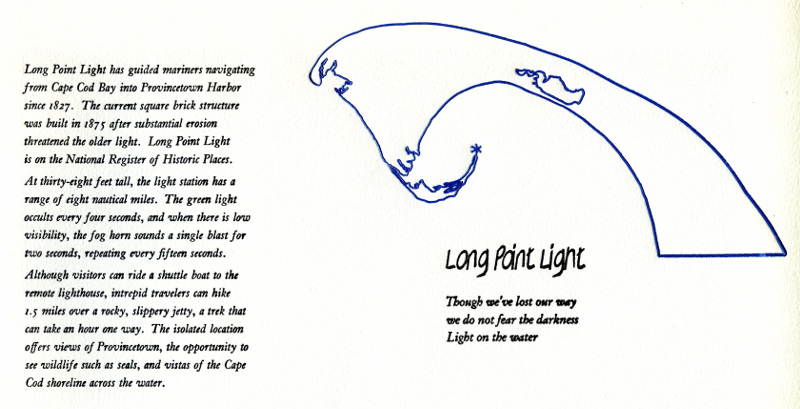 Long Point Light has guided mariners navigating
from Cape Cod Bay into Provincetown Harbor
since 1827. The current square brick structure
was built in 1875 after substantial erosion
threatened the older light. Long Point Light
is on the National Register of Historic Places.
At thirty-eight feet tall, the light station has a
range of eight nautical miles. The green light
occults every four seconds, and when there is low
visibility, the fog horn sounds a single blast for
two seconds, repeating every fifteen seconds.
Although visitors can ride a shuttle boat to the
remote lighthouse, intrepid travelers can hike
1.5 miles over a rocky, slippery jetty, a trek that
can take an hour one way. The isolated location
offers views of Provincetown, the opportunity to
see wildlife such as seals, and vistas of the Cape
Cod shoreline across the water.
Long Point Light
Though we've lost our way
we do not fear the darkness
Light on the water